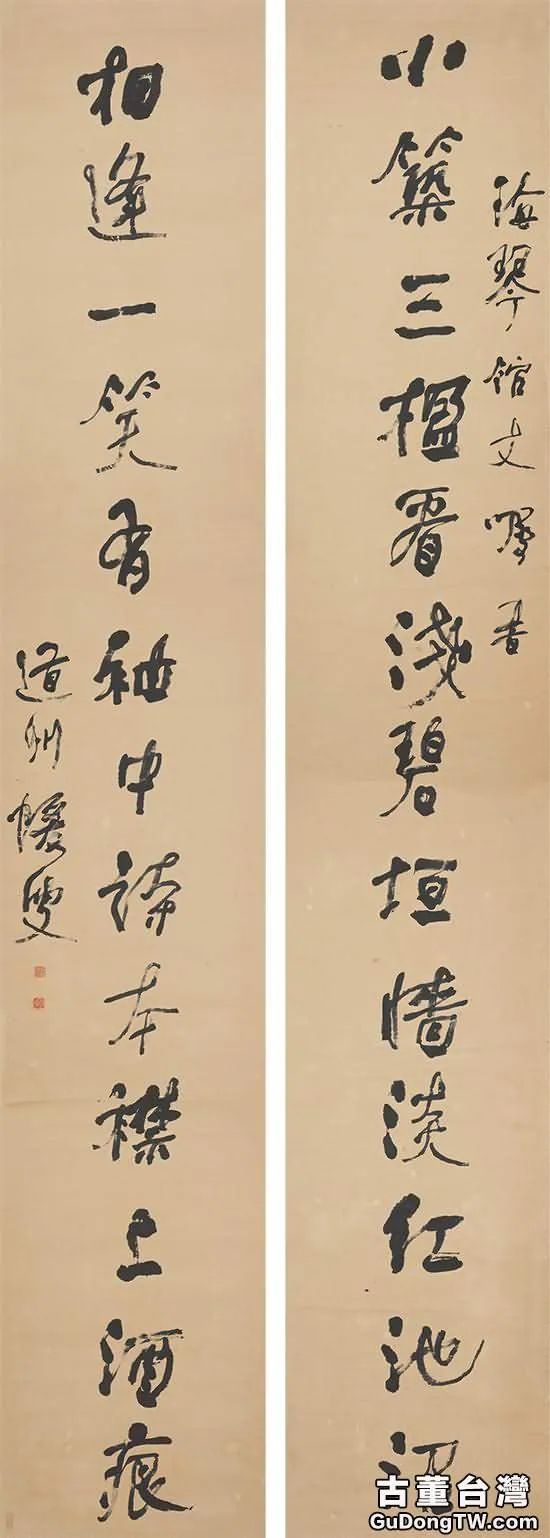 海琴館丈囑書
小築三楹看淺碧垣墻淡紅池沼
相逢一笑有袖中詩本襟上酒痕
道州蝯叟
古董台灣
GuDongTW.com